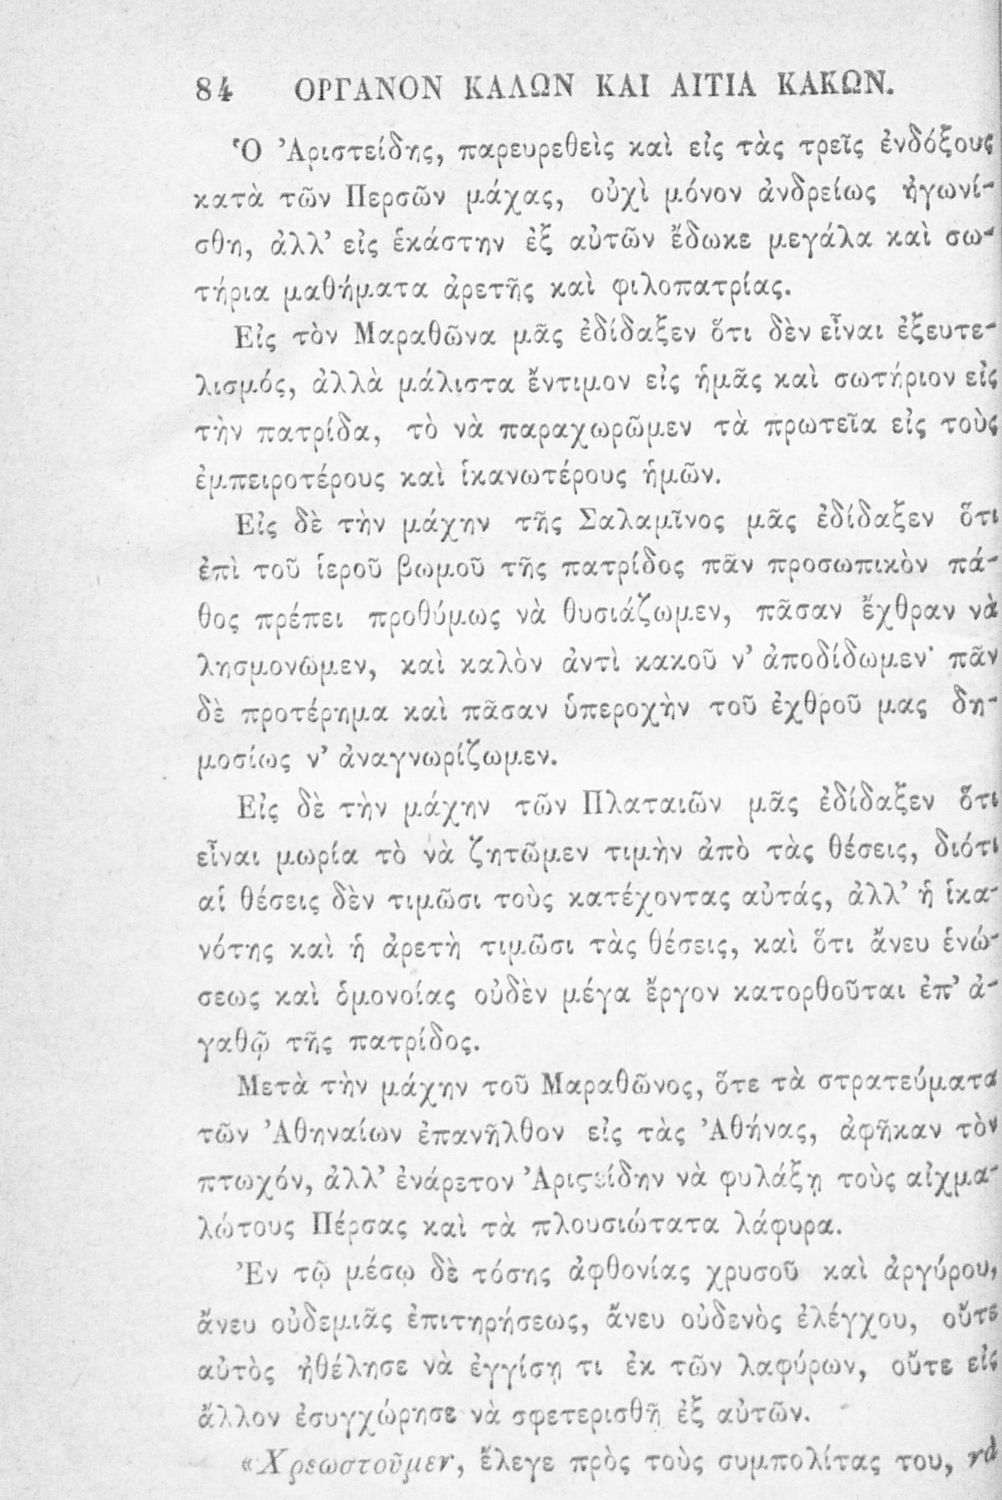 84 ΟΡΓΑΝΟΝ ΚΑΛΩΝ ΚΑΙ ΑΙΤΙΑ ΚΑΚΩΝ.
Ὁ Ἀριστείδης, παρευρεθεὶς καὶ εἰς τὰς τρεῖς ἐνδόξους
κατὰ τῶν Περσῶν μάχας, οὐχὶ μόνον ἀνδρείως ἠγωνί-
σθη, ἀλλ’ εἰς ἑκάστην ἐξ αὐτῶν ἔδωκε μεγάλα καὶ σω-
τήρια μαθήματα ἀρετῆς καὶ φιλοπατρίας.
Εἰς τὸν Μαραθῶνα μᾶς ἐδίδαξεν ὅτι δὲν εἶναι ἐξευτε-
λισμός, ἀλλὰ μάλιστα ἔντιμον εἰς ἡμᾶς καὶ σωτήριον εἰς
τὴν πατρίδα, τὸ νὰ παραχωρῶμεν τὰ πρωτεῖα εἰς τοὺς
ἐμπειροτέρους καὶ ἱκανωτέρους ἡμῶν.
Εἰς δὲ τὴν μάχην τῆς Σαλαμῖνος μᾶς ἐδίδαξεν ὅτι
ἐπὶ τοῦ ἱεροῦ βωμοῦ τῆς πατρίδος πᾶν προσωπικὸν πά-
θος πρέπει προθύμως νὰ θυσιάζωμεν, πᾶσαν ἔχθραν νὰ
λησμονῶμεν, καὶ καλὸν ἀντὶ κακοῦ ν’ ἀποδίδωμεν· πᾶν
δὲ προτέρημα καὶ πᾶσαν ὑπεροχὴν τοῦ ἐχθροῦ μας δη-
μοσίως ν’ ἀναγνωρίζωμεν.
Εἰς δὲ τὴν μάχην τῶν Πλαταιῶν μᾶς ἐδίδαξεν ὅτι
εἶναι μωρία τὸ νὰ ζητῶμεν τιμὴν ἀπὸ τὰς θέσεις, διότι
αἱ θέσεις δὲν τιμῶσι τοὺς κατέχοντας αὐτάς, ἀλλ’ ἡ ἱκα-
νότης καὶ ἡ ἀρετὴ τιμῶσι τὰς θέσεις, καὶ ὅτι ἄνευ ἑνώ-
σεως καὶ ὁμονοίας οὐδὲν μέγα ἔργον κατορθοῦται ἐπ’ ἀ-
γαθῷ τῆς πατρίδος.
Μετὰ τὴν μάχην τοῦ Μαραθῶνος, ὅτε τὰ στρατεύματα
τῶν Ἀθηναίων ἐπανῆλθον εἰς τὰς Ἀθήνας, ἀφῆκαν τὸν
πτωχόν, ἀλλ’ ἐνάρετον Ἀριϛείδην νὰ φυλάξῃ τοὺς αἰχμα-
λώτους Πέρσας καὶ τὰ πλουσιώτατα λάφυρα.
Ἐν τῷ μέσῳ δὲ τόσης ἀφθονίας χρυσοῦ καὶ ἀργύρου,
ἄνευ οὐδεμιᾶς ἐπιτηρήσεως, ἄνευ οὐδενὸς ἐλέγχου, οὔτε
αὐτὸς ἠθέλησε νὰ ἐγγίσῃ τι ἐκ τῶν λαφύρων, οὔτε εἰς
ἄλλον ἐσυγχώρησε νὰ σφετερισθῇ ἐξ αὐτῶν.
«Χρεωστοῦμεν, ἔλεγε πρὸς τοὺς συμπολίτας του, νὰ